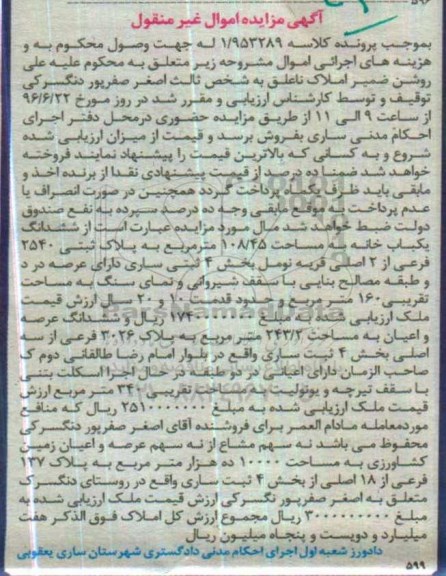 ۵۹۶
آگهی مزایده اموال غیر منقول
بموجب پرونده کلاسه ۱/۹۵۳۲۸۹ لـه جهت وصول محکوم به و
هزینه های اجرائی اموال مشروحه زیر متعلق به محکوم علیه علی
روشن ضمیر املاک ناعلق به شخص ثالث اصغر صفرپور دنگسرکی
توقیف و توسط کارشناس ارزیابی و مقرر شد در روز مورخ ۹۶/۶/۲۲
از ساعت ۹ الی ۱۱ از طریق مزایده حضوری درمحل دفتر اجرای
احکام مدنی ساری بفروش برسد و قیمت از میزان ارزیابی شده
شروع و به کسانی که بالاترین قیمت را پیشنهاد نمایند فروخته
خواهد شد ضمنا ده درصد از قیمت پیشنهادی نقدا از برنده اخذ و
مابقی باید ظرف یکماه پرداخت گردد همچنین در صورت انصراف یا
عدم پرداخت به موقع مابقی وجه ده درصد سپرده به نفع صندوق
دولت ضبط خواهد شد مال مورد مزایده عبارت است از ششدانگ
یکباب خانه به مساحت ۱۰۸/۴۵ مترمربع به پلاک ثبتی ۲۵۴۰
فرعی از ۲ اصلی قریه نومل بخش ۴ ثبتی ساری دارای عرصه در د
و طبقه مصالح بنایی با سقف شیروانی و نمای سنگ به مساحت
تقریبی ۱۶۰ متر مربع و حدود قدمت ۱۰ و ۲۰ سال ارزش قیمت
ملک ارزیابی ریال و ششدانگ عرصه
و اعیان به مساحت ۲۴۳/۲ متر مربع به پلاک ۳۰۲۶ فرعی از سه
اصلی بخش ۴ ثبت ساری واقع در بلوار امام رضا طالقانی دوم ک
صاحب الزمان دارای اعیانی در دو طبقه در حال اجرا اسکلت بتنی
با سقف تیرچه و یونولیت به مساحت تقریبی ۳۴۰ متر مربع ارزش
قیمت ملک ارزیابی شده به مبلغ ۲۵۱۰۰۰۰۰۰۰ ریال که منافع
موردمعامله مادام العمر برای فروشنده آقای اصغر صفرپور دنگسرکی
محفوظ می باشد نه سهم مشاع از نه سهم عرصه و اعیان زمین
کشاورزی به مساحت ۱۰۰۰۰ ده هزار متر مربع به پلاک ۱۳۷
فرعی از ۱۸ اصلی از بخش ۴ ثبت ساری واقع در روستای دنگسرک
متعلق به اصغر صفرپور نگسرکی ارزش قیمت ملک ارزیابی شده به
مبلغ ۳۰۰۰۰۰۰۰۰۰ ریال مجموع ارزش کل املاک فوق الذکر هفت
میلیارد و دویست و پنجاه میلیون ریال
دادورز شعبه اول اجرای احکام مدنی دادگستری شهرستان ساری یعقوبی
۵۹۹